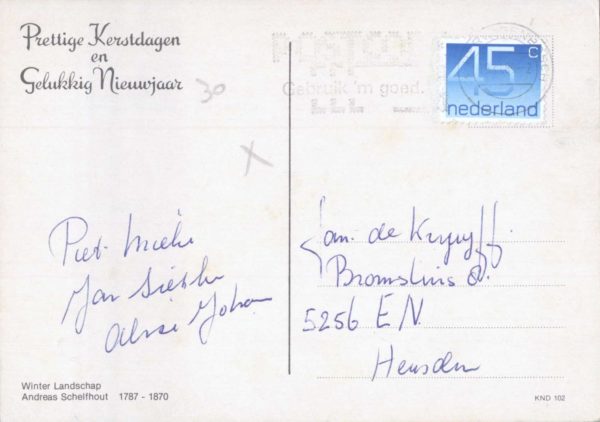 Prettige Kerstdagen
en
Gelukkig Nieuwjaar
30
Gebruik 'm goed.
45 c
nederland
Piet
Jan
Johan
Jan de Kruyff.
5256 EN
Heusden
Winter Landschap
Andreas Schelfhout 1787 - 1870
KND 102